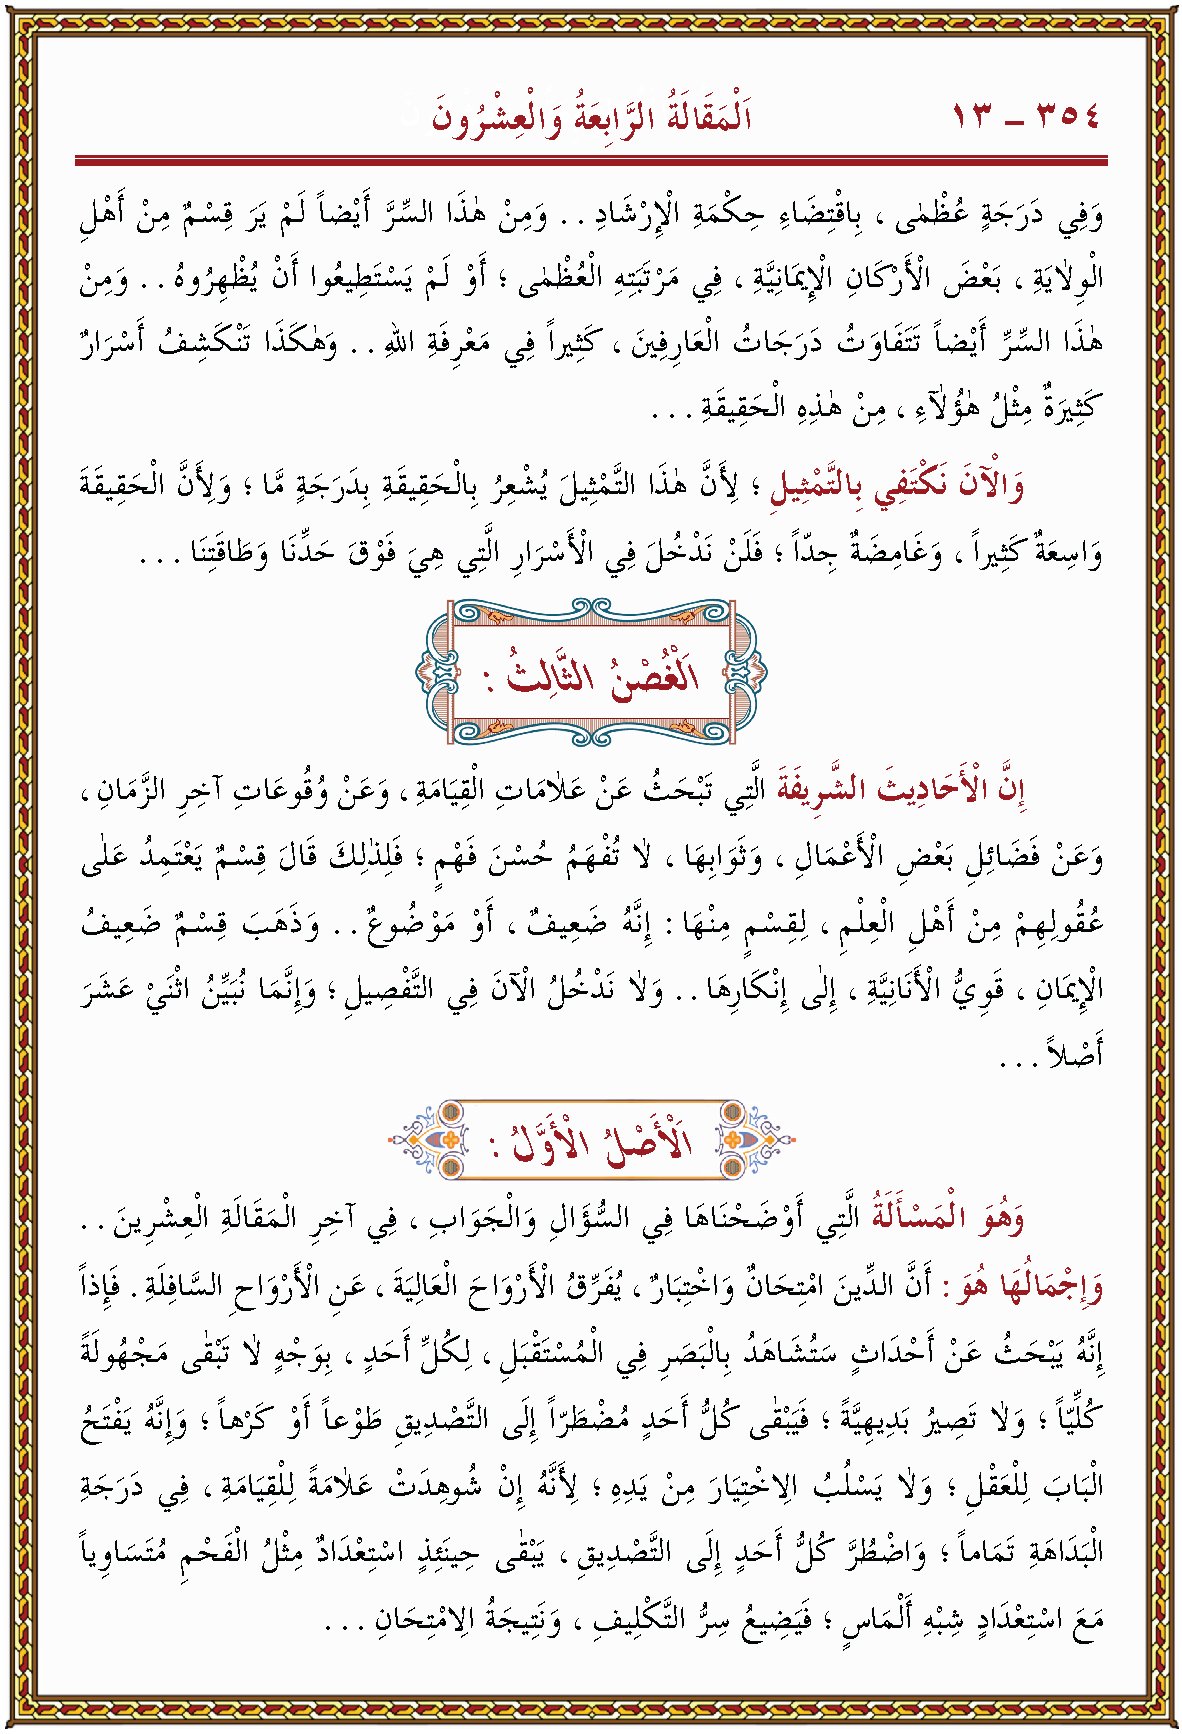 ٣٥٤ – ١٣
اَلْمَقَالَةُ الرَّابِعَةُ وَالْعِشْرُونَ
وَفِي دَرَجَةٍ عُظْمٰى ، بِاقْتِضَاءِ حِكْمَةِ الْإِرْشَادِ . . وَمِنْ هٰذَا السِّرَّ أَيْضاً لَمْ يَرَ قِسْمٌ مِنْ أَهْلِ
الْوِلاٰيَةِ ، بَعْضَ الْأَرْكَانِ الْإِيمَانِيَّةِ ، فِي مَرْتَبَتِهِ الْعُظْمٰى ؛ أَوْ لَمْ يَسْتَطِيعُوا أَنْ يُظْهِرُوهُ . . وَمِنْ
هٰذَا السِّرِّ أَيْضاً تَتَفَاوَتُ دَرَجَاتُ الْعَارِفِينَ ، كَثِيراً فِي مَعْرِفَةِ اللهِ . . وَهٰكَذَا تَنْكَشِفُ أَسْرَارٌ
كَثِيرَةٌ مِثْلُ هٰؤُلآٰءِ ، مِنْ هٰذِهِ الْحَقِيقَةِ . . .
وَالْآنَ نَكْتَفِي بِالتَّمْثِيلِ ؛ لِأَنَّ هٰذَا التَّمْثِيلَ يُشْعِرُ بِالْحَقِيقَةِ بِدَرَجَةٍ مَّا ؛ وَلِأَنَّ الْحَقِيقَةَ
وَاسِعَةٌ كَثِيراً ، وَغَامِضَةٌ جِدّاً ؛ فَلَنْ نَدْخُلَ فِي الْأَسْرَارِ الَّتِي هِيَ فَوْقَ حَدِّنَا وَطَاقَتِنَا . . .
اَلْغُصْنُ الثَّالِثُ :
إِنَّ الْأَحَادِيثَ الشَّرِيفَةَ الَّتِي تَبْحَثُ عَنْ عَلاٰمَاتِ الْقِيَامَةِ ، وَعَنْ وُقُوعَاتِ آخِرِ الزَّمَانِ ،
وَعَنْ فَضَائِلِ بَعْضِ الْأَعْمَالِ ، وَثَوَابِهَا ، لاٰ تُفْهَمُ حُسْنَ فَهْمٍ ؛ فَلِذٰلِكَ قَالَ قِسْمٌ يَعْتَمِدُ عَلٰى
عُقُولِهِمْ مِنْ أَهْلِ الْعِلْمِ ، لِقِسْمٍ مِنْهَا : إِنَّهُ ضَعِيفٌ ، أَوْ مَوْضُوعٌ . . وَذَهَبَ قِسْمٌ ضَعِيفُ
الْإِيمَانِ ، قَوِيُّ الْأَنَانِيَّةِ ، إِلٰى إِنْكَارِهَا . . وَلاٰ نَدْخُلُ الْآنَ فِي التَّفْصِيلِ ؛ وَإِنَّمَا نُبَيِّنُ اثْنَيْ عَشَرَ
أَصْلاً . . .
اَلْأَصْلُ الْأَوَّلُ :
وَهُوَ الْمَسْأَلَةُ الَّتِي أَوْضَحْنَاهَا فِي السُّؤَالِ وَالْجَوَابِ ، فِي آخِرِ الْمَقَالَةِ الْعِشْرِينَ . .
وَإِجْمَالُهَا هُوَ : أَنَّ الدِّينَ امْتِحَانٌ وَاخْتِبَارٌ ، يُفَرِّقُ الْأَرْوَاحَ الْعَالِيَةَ ، عَنِ الْأَرْوَاحِ السَّافِلَةِ . فَإِذاً
إِنَّهُ يَبْحَثُ عَنْ أَحْدَاثٍ سَتُشَاهَدُ بِالْبَصَرِ فِي الْمُسْتَقْبَلِ ، لِكُلِّ أَحَدٍ ، بِوَجْهٍ لاٰ تَبْقٰى مَجْهُولَةً
كُلِّيّاً ؛ وَلاٰ تَصِيرُ بَدِيهِيَّةً ؛ فَيَبْقٰى كُلُّ أَحَدٍ مُضْطَرّاً إِلَى التَّصْدِيقِ طَوْعاً أَوْ كَرْهاً ؛ وَإِنَّهُ يَفْتَحُ
الْبَابَ لِلْعَقْلِ ؛ وَلاٰ يَسْلُبُ الِاخْتِيَارَ مِنْ يَدِهِ ؛ لِأَنَّهُ إِنْ شُوهِدَتْ عَلاٰمَةٌ لِلْقِيَامَةِ ، فِي دَرَجَةِ
الْبَدَاهَةِ تَمَاماً ؛ وَاضْطُرَّ كُلُّ أَحَدٍ إِلَى التَّصْدِيقِ ، يَبْقٰى حِينَئِذٍ اسْتِعْدَادٌ مِثْلُ الْفَحْمِ مُتَسَاوِياً
مَعَ اسْتِعْدَادٍ شِبْهِ أَلْمَاسٍ ؛ فَيَضِيعُ سِرُّ التَّكْلِيفِ ، وَنَتِيجَةُ الِامْتِحَانِ . . .